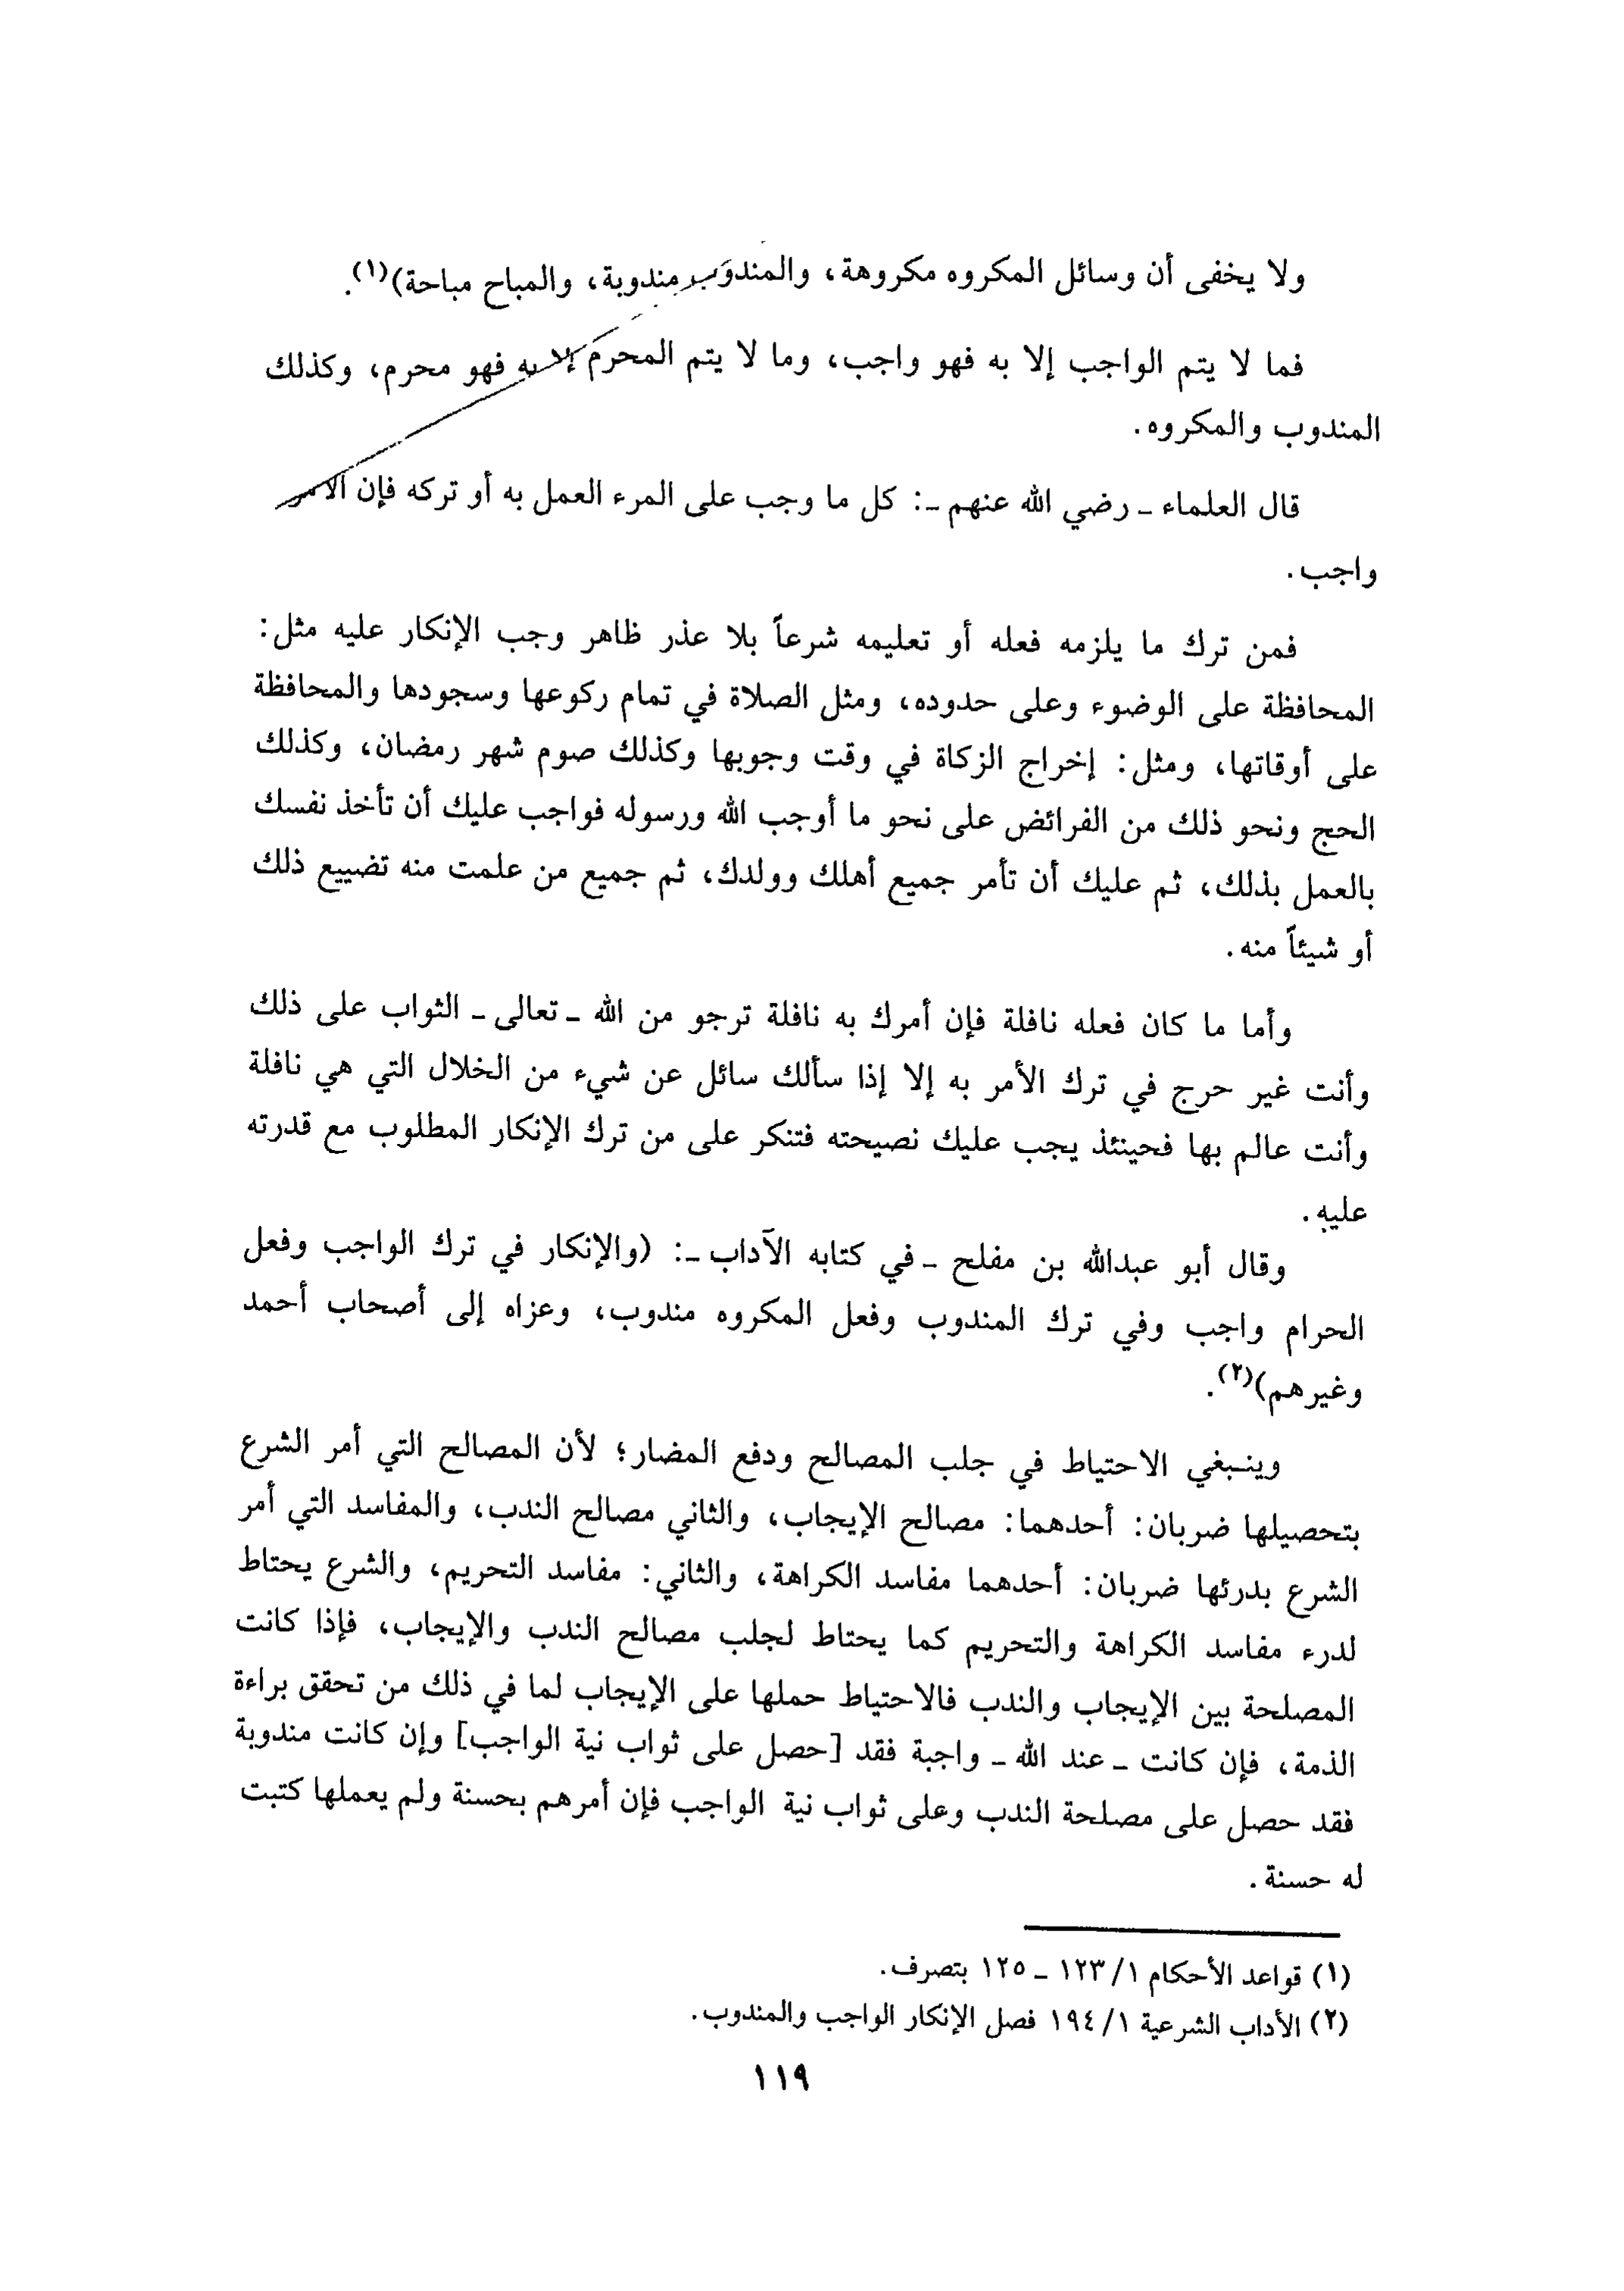 ولا يخفى أن وسائل المكروه مكروهة، والمندوب مندوبة، والمباح مباحة)(١).
فما لا يتم الواجب إلا به فهو واجب، وما لا يتم المحرم إلا به فهو محرم، وكذلك
المندوب والمكروه.
قال العلماء ـ رضي الله عنهم ـ: كل ما وجب على المرء العمل به أو تركه فإن الأمر
واجب.
فمن ترك ما يلزمه فعله أو تعليمه شرعاً بلا عذر ظاهر وجب الإنكار عليه مثل:
المحافظة على الوضوء وعلى حدوده، ومثل الصلاة في تمام ركوعها وسجودها والمحافظة
على أوقاتها، ومثل: إخراج الزكاة في وقت وجوبها وكذلك صوم شهر رمضان، وكذلك
الحج ونحو ذلك من الفرائض على نحو ما أوجب الله ورسوله فواجب عليك أن تأخذ نفسك
بالعمل بذلك، ثم عليك أن تأمر جميع أهلك وولدك، ثم جميع من علمت منه تضييع ذلك
أو شيئاً منه.
وأما ما كان فعله نافلة فإن أمرك به نافلة ترجو من الله ـ تعالى ـ الثواب على ذلك
وأنت غير حرج في ترك الأمر به إلا إذا سألك سائل عن شيء من الخلال التي هي نافلة
وأنت عالم بها فحينئذ يجب عليك نصيحته فتنكر على من ترك الإنكار المطلوب مع قدرته
عليه.
وقال أبو عبدالله بن مفلح ـ في كتابه الآداب ـ: (والإنكار في ترك الواجب وفعل
الحرام واجب وفي ترك المندوب وفعل المكروه مندوب، وعزاه إلى أصحاب أحمد
وغيرهم)(٢).
وينبغي الاحتياط في جلب المصالح ودفع المضار؛ لأن المصالح التي أمر الشرع
بتحصيلها ضربان: أحدهما: مصالح الإيجاب، والثاني مصالح الندب، والمفاسد التي أمر
الشرع بدرئها ضربان: أحدهما مفاسد الكراهة، والثاني: مفاسد التحريم، والشرع يحتاط
لدرء مفاسد الكراهة والتحريم كما يحتاط لجلب مصالح الندب والإيجاب، فإذا كانت
المصلحة بين الإيجاب والندب فالاحتياط حملها على الإيجاب لما في ذلك من تحقق براءة
الذمة، فإن كانت ـ عند الله ـ واجبة فقد [حصل على ثواب نية الواجب] وإن كانت مندوبة
فقد حصل على مصلحة الندب وعلى ثواب نية الواجب فإن أمرهم بحسنة ولم يعملها كتبت
له حسنة.
(١) قواعد الأحكام ١/ ١٢٣ ـ ١٢٥ بتصرف.
(٢) الأداب الشرعية ١/ ١٩٤ فصل الإنكار الواجب والمندوب.
١١٩